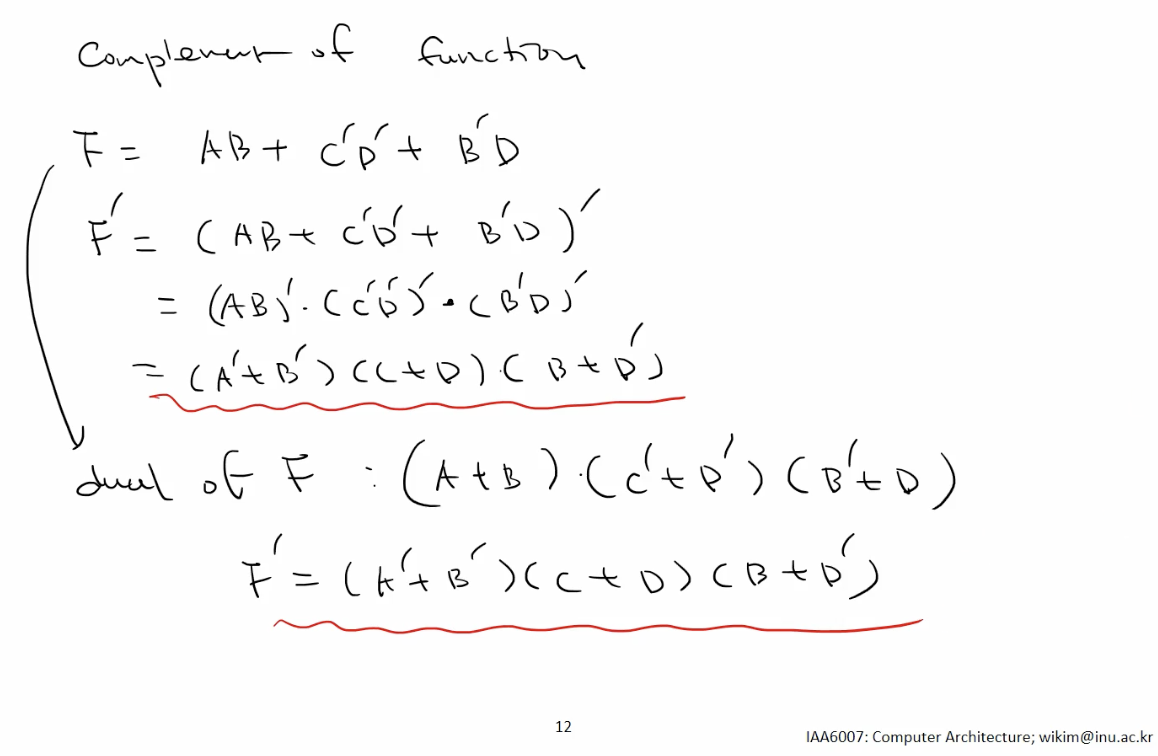 Complement of function
F = AB + C'D' + B'D
F' = (AB + C'D' + B'D)'
= (AB)' · (C'D')' · (B'D)'
= (A'+B')(C+D)·(B+D')
dual of F : (A+B)·(C'+D')(B'+D)
F' = (A'+B')(C+D)(B+D')
12
IAA6007: Computer Architecture; wikim@inu.ac.kr